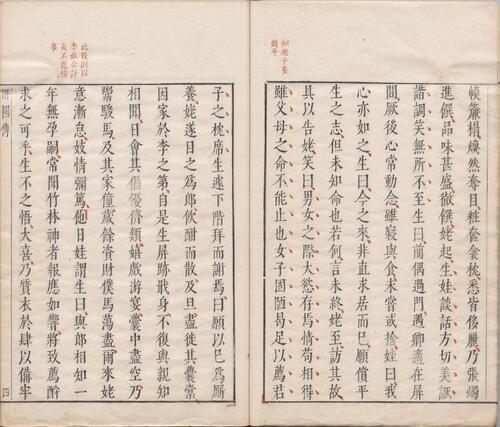 幙簾榻煥然奪目粧奩衾枕悉皆侈麗乃張燭
進饌品味甚盛徹饌姥起生娃談話方切美詼
諧調笑無所不至生曰前偶過門遇卿適在屏
間厥後心常動念雖寢與食未嘗或捨娃曰我
心亦如之生曰今之來非直求居而已願償平
生之志但未知命也若何言未終姥至訪其故
具以告姥笑曰男女之際大欲存焉情苟相得
雖父母之命不能止也女子固陋曷足以薦君
子之枕席生遂下階拜而謝焉曰願以已爲厮
養姥遂目之爲郎飲酣而散及旦盡徙其囊橐
因家於李之第自是生屏跡戢身不復與親知
相聞日會其倡優儕類媟戲游宴囊中盡空乃
鬻駿馬及其家僮歲餘資財僕馬蕩盡爾來姥
意漸怠妓情彌篤他日娃謂生曰與郎相知一
年無孕嗣常聞竹林神者報應如響將致薦酹
求之可乎生不之悟大喜乃質衣於肆以備牢
汧國傳
四